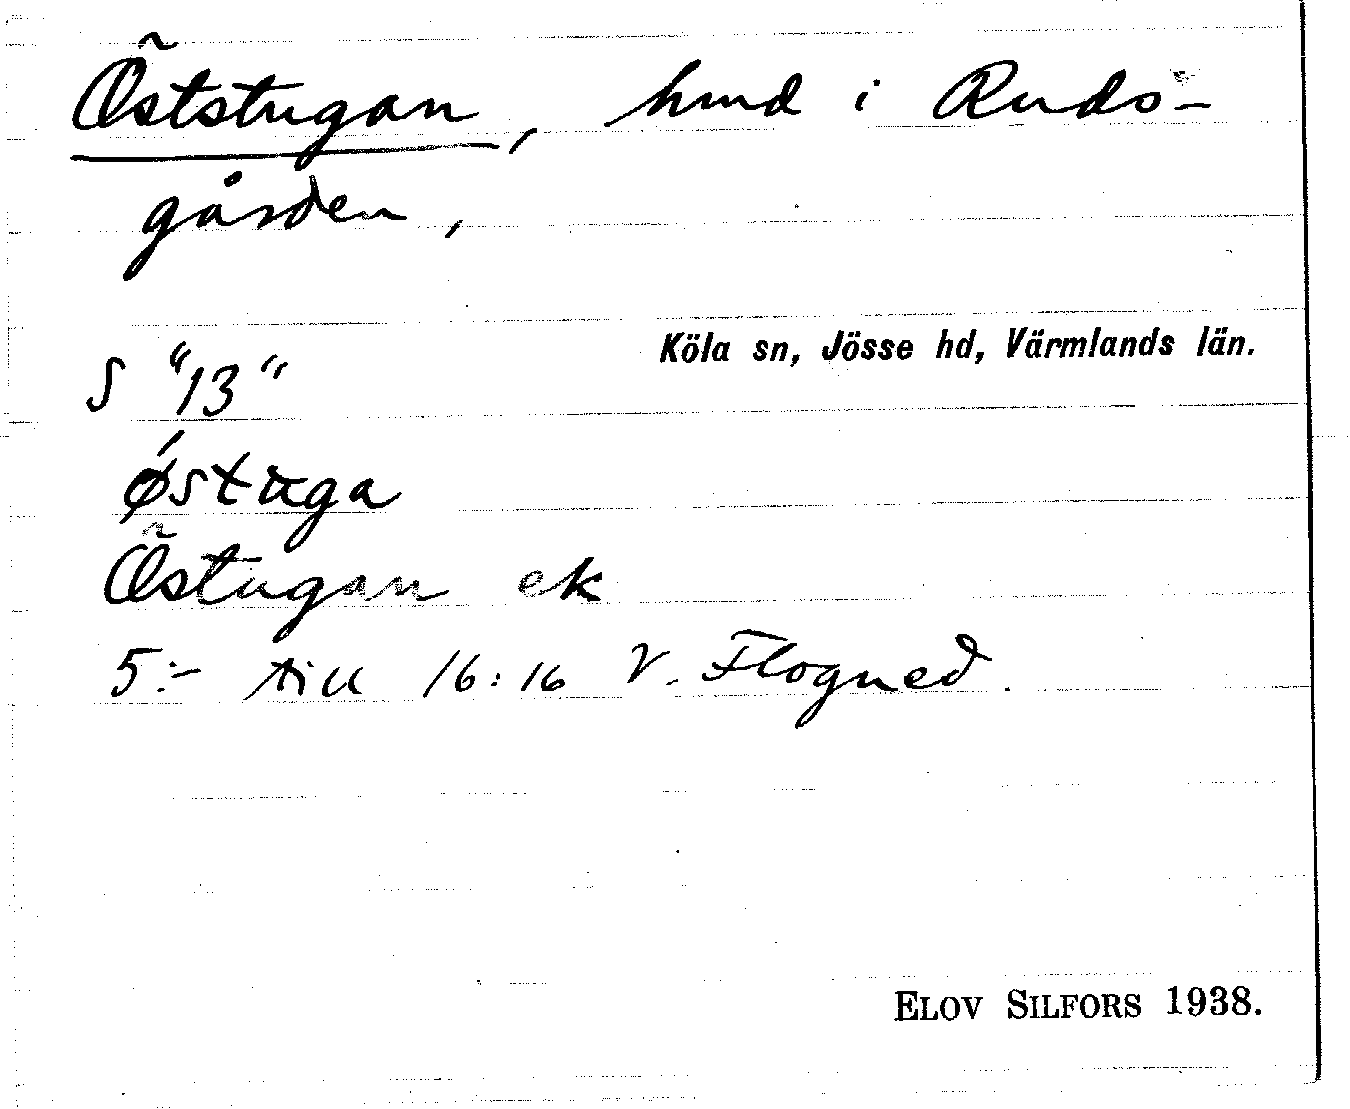 Öststugan, hmd i Ruds-
gården,
Köla sn, Jösse hd, Värmlands län.
S "13"
østuga
Östugan ek
5:- till 16:16 V. Flogned.
ELOV SILFORS 1938.